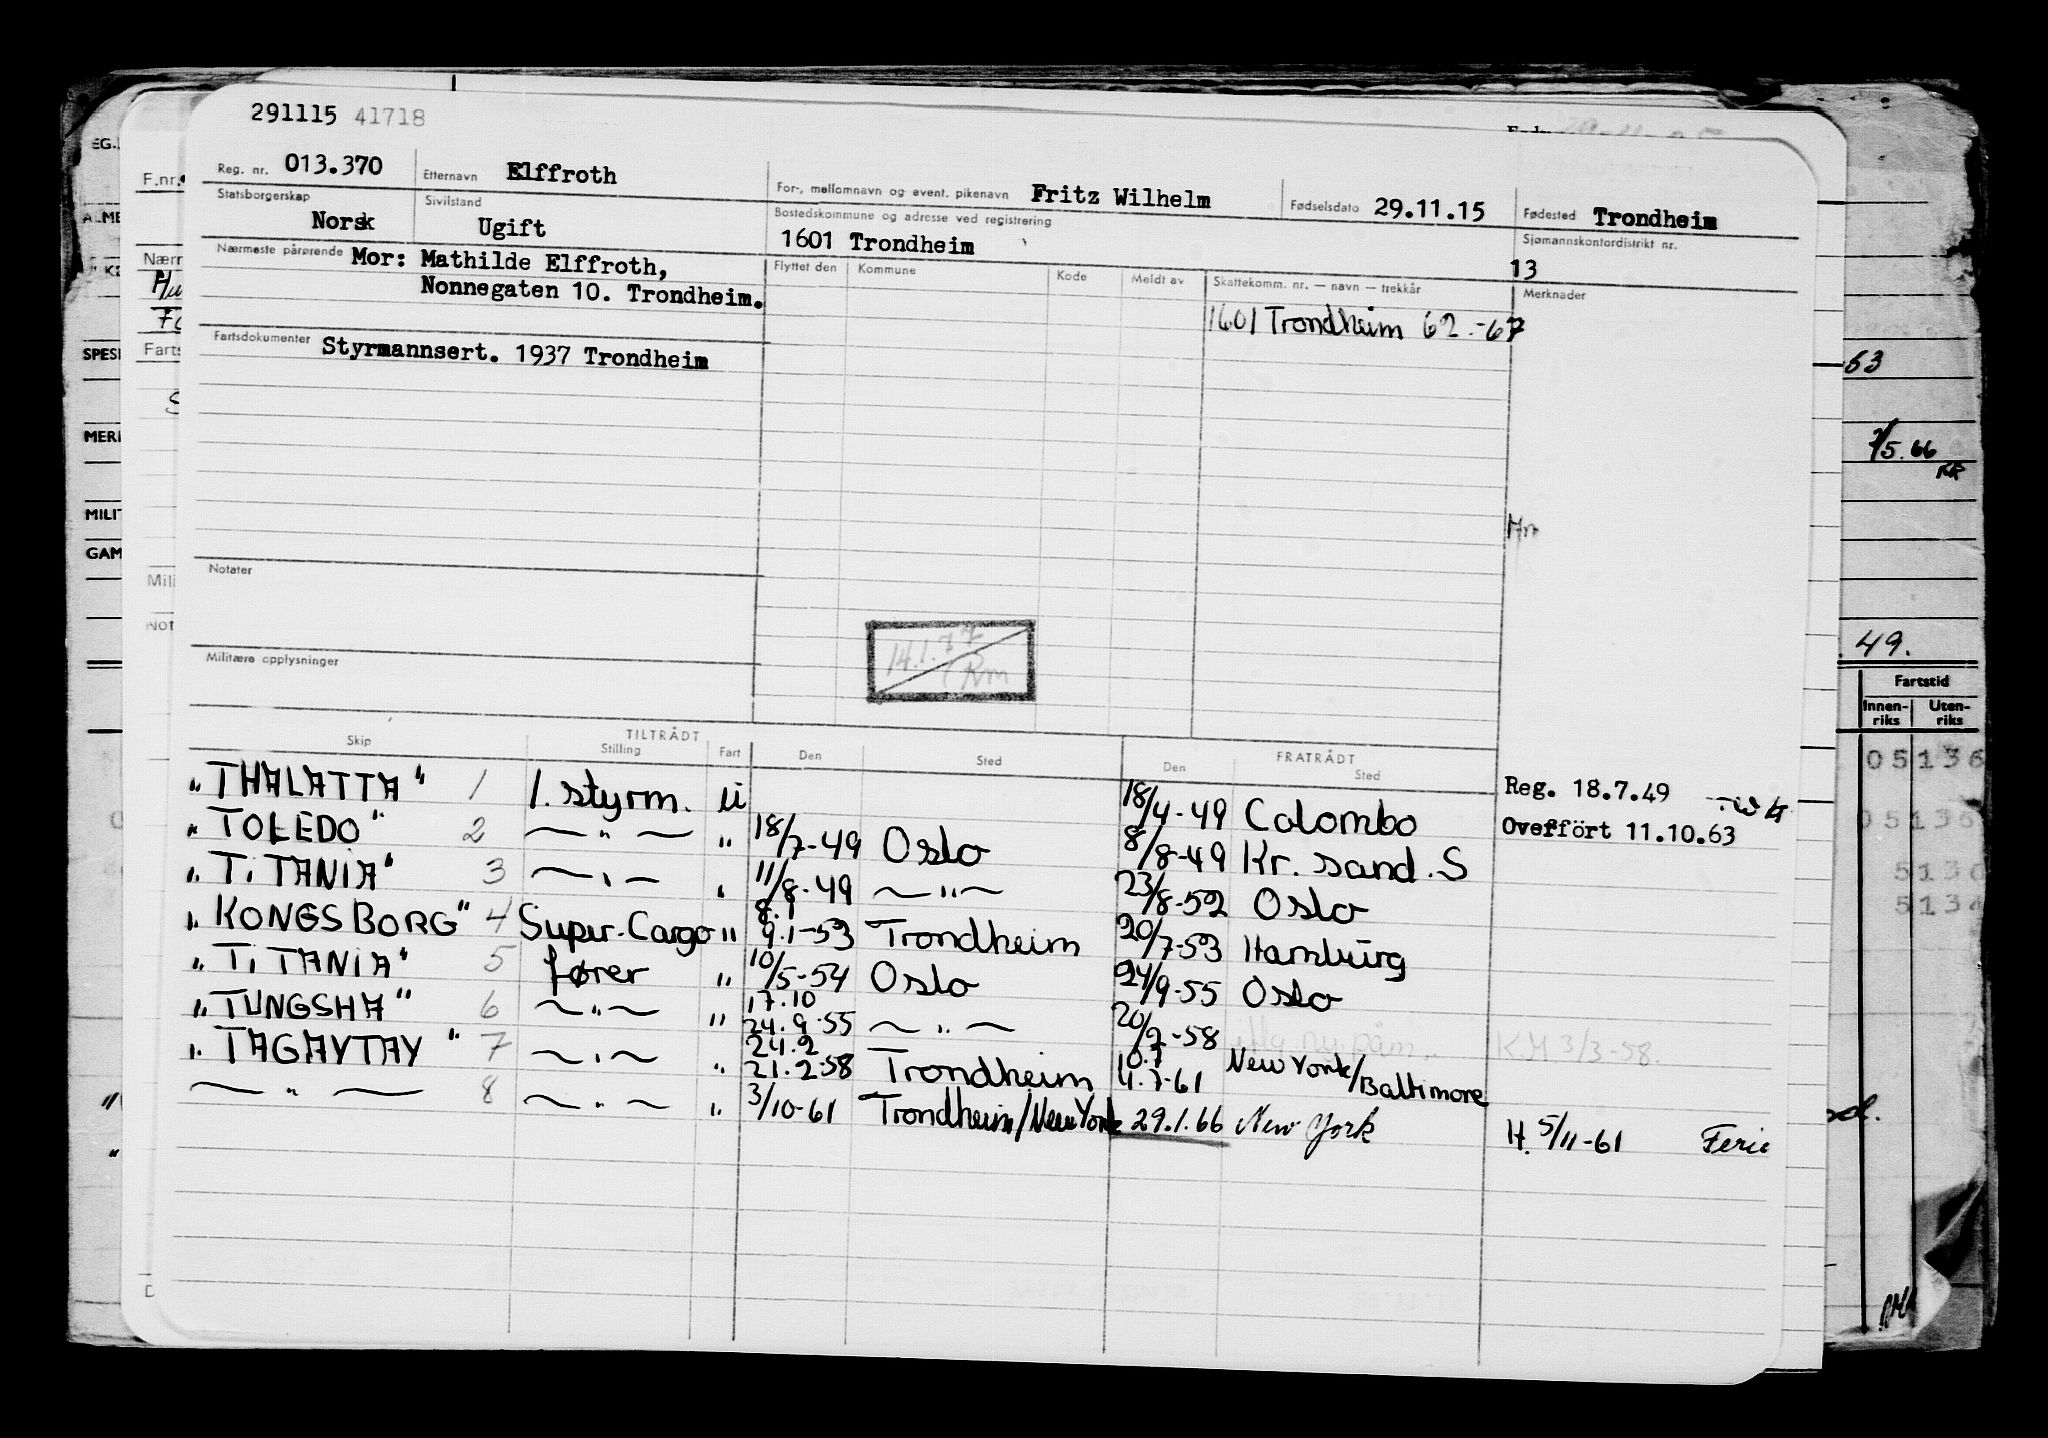 291115 41718
Reg. nr. 013.370 Etternavn Elffroth For-, mellomnavn og event. pikenavn Fritz Wilhelm Fødselsdato 29.11.15 Fødested Trondheim
Statsborgerskap Norsk Sivilstand Ugift Bostedskommune og adresse ved registrering 1601 Trondheim Sjømannskontordistrikt nr. 13
Nærmeste pårørende Mor: Mathilde Elffroth,
Nonnegaten 10. Trondheim.
Flyttet den Kommune Kode Meldt av Skattekomm. nr. — navn — trekkår Merknader
1601 Trondheim 62.-67
Fartsdokumenter Styrmannsert. 1937 Trondheim
Notater
14.1.77
Rm
Militære opplysninger
TILTRÅDT FRATRÅDT
Skip Stilling Fart Den Sted Den Sted
"THALATTA" 1 1. styrm. U 18/4-49 Colombo Reg. 18.7.49
"TOLEDO" 2 —"— " 18/7-49 Oslo 8/8-49 Kr. sand. S Oveffört 11.10.63
"TITANIA" 3 —"— " 11/8-49 —"— 23/8-52 Oslo
"KONGSBORG" 4 Super-Cargo " 8.1 9.1-53 Trondheim 20/7-53 Hamburg
"TITANIA" 5 fører " 10/5-54 Oslo 24/9-55 Oslo
"TUNGSHA" 6 —"— " 17.10 24.9.55 —"— 20/2-58 K.M 3/3-58.
"TAGAYTAY" 7 —"— " 24.2 21.2.58 Trondheim 10.7 4.7-61 New York/Baltimore
—"— 8 —"— " 3/10-61 Trondheim/New York 29.1.66 New York H. 5/11-61 Ferie
F.nr.
SPESI
MILIT
GAM
53
5.66
49.
Fartstid
Innen-riks Uten-riks
05136
05136
5136